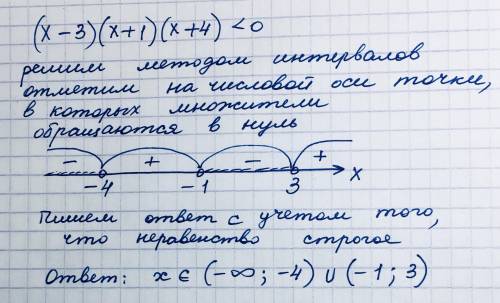 (x-3)(x+1)(x+4)<0
решим методом интервалов
отметим на числовой оси точки,
в которых множители
обращаются в нуль
- + - +
-4 -1 3 x
Пишем ответ с учетом того,
что неравенство строгое
Ответ: x ∈ (-∞; -4) ∪ (-1; 3)